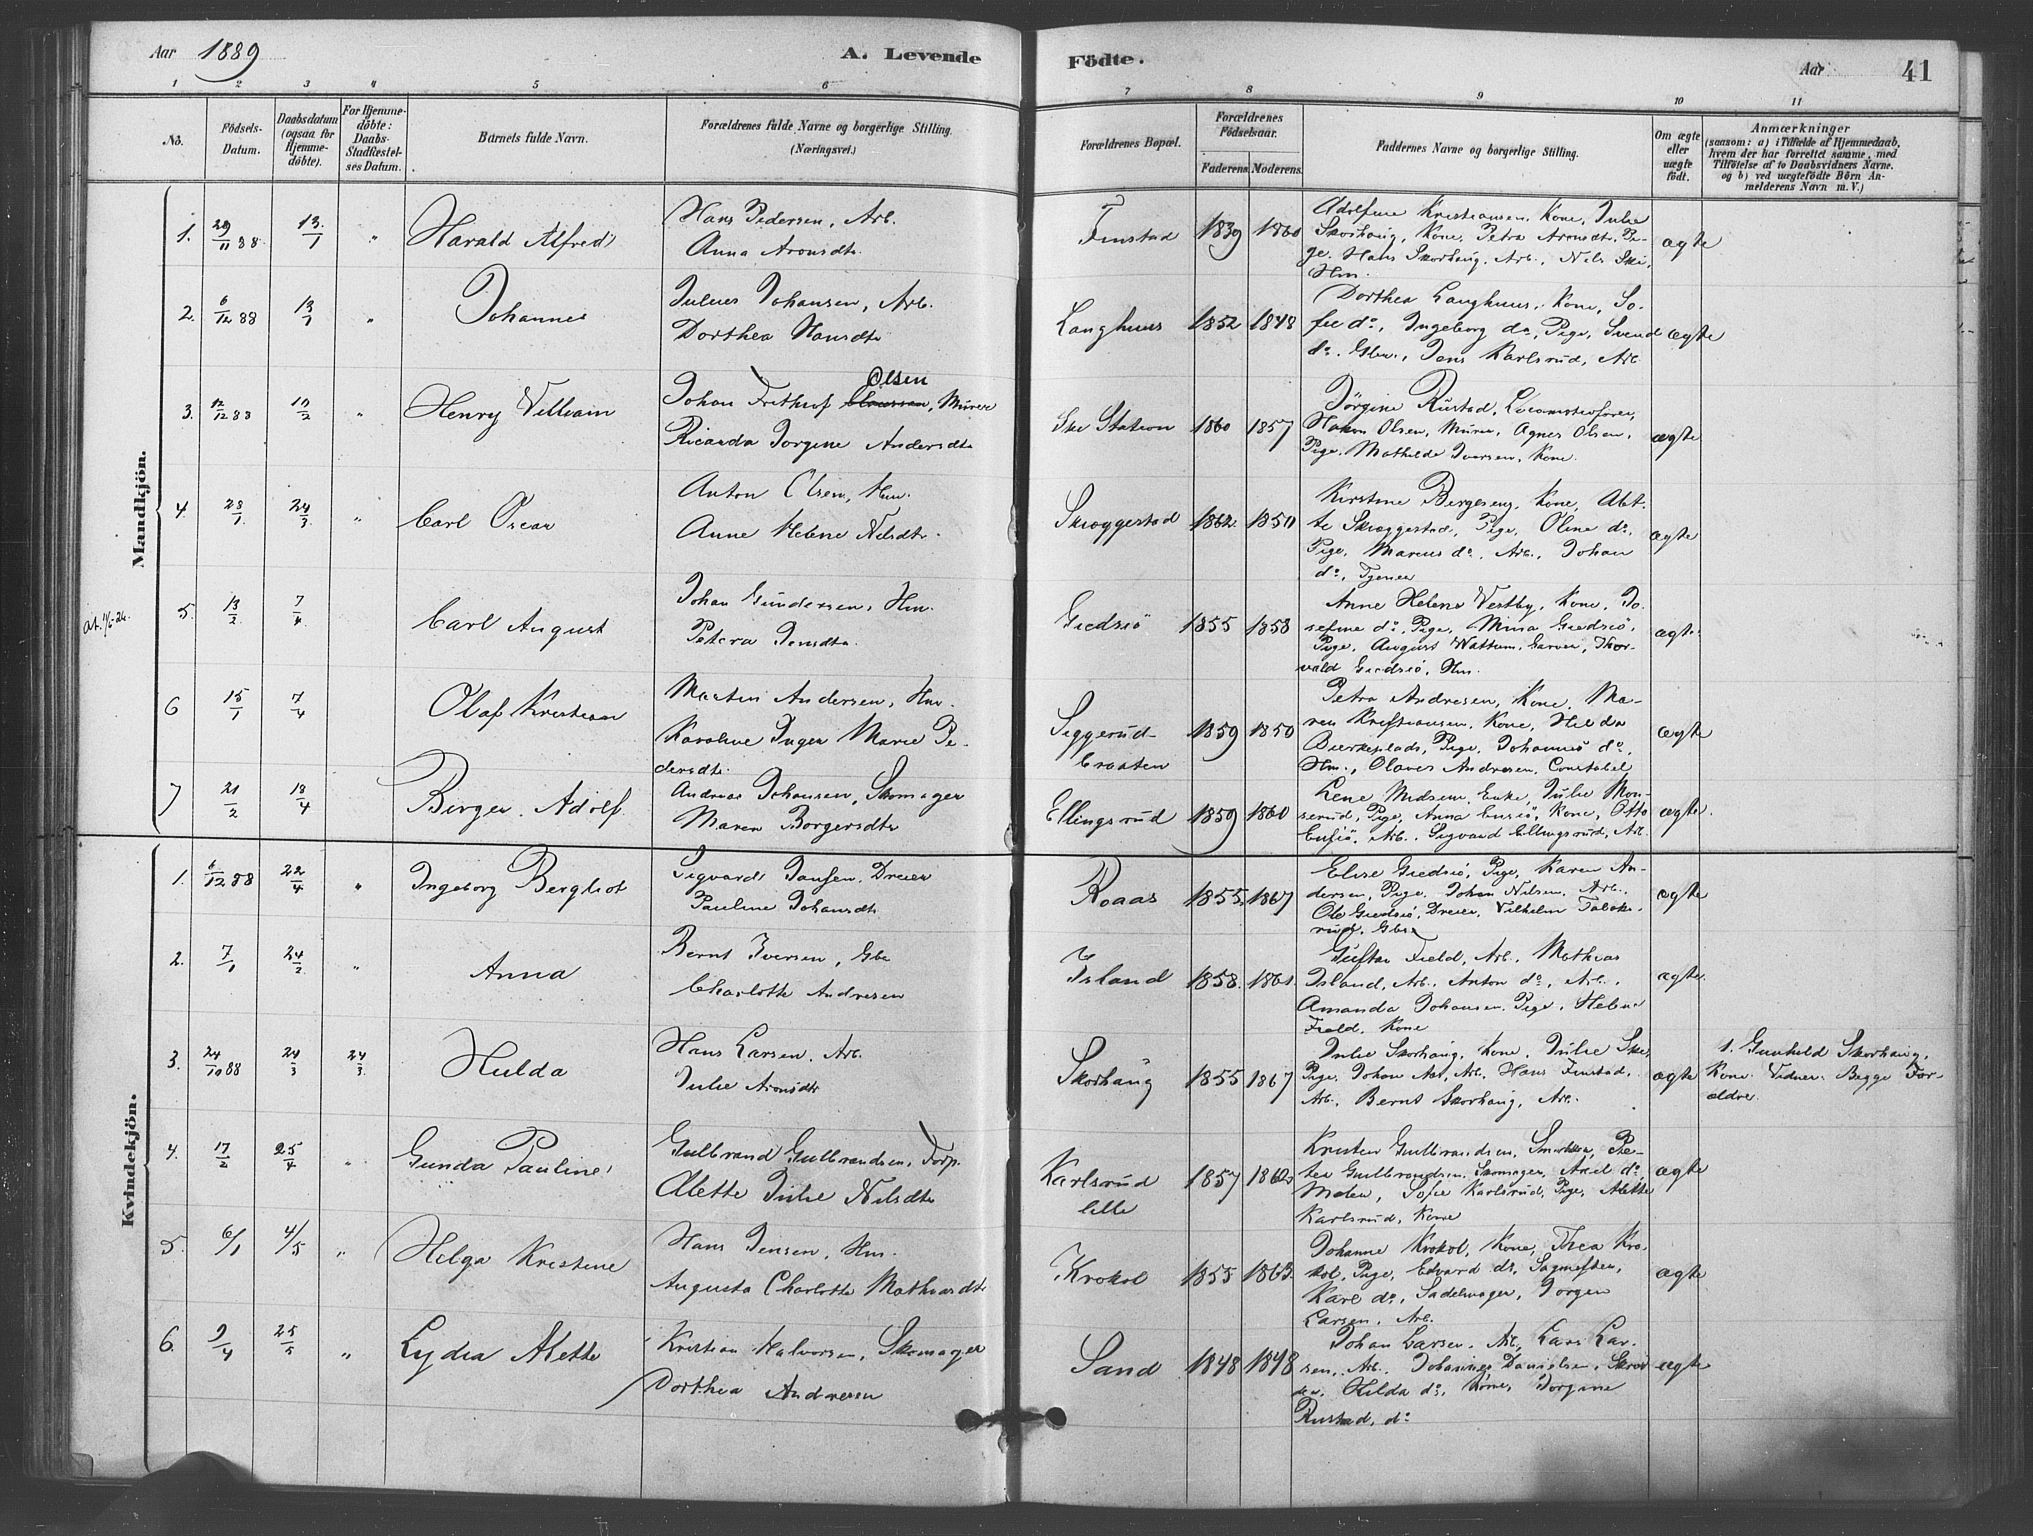 Aar 1889
A. Levende Födte.
Aar 41
1 2 3 4 5 6 7 8 9 10 11
No.
Födsels-
Datum.
Daabsdatum
(ogsaa for
Hjemme-
döbte).
For Hjemme-
döbte:
Daabs-
Stadfæstel-
ses Datum.
Barnets fulde Navn.
Forældrenes fulde Navne og borgerlige Stilling.
(Næringsvei.)
Forældrenes Bopæl.
Forældrenes
Födselsaar.
Faderens. Moderens.
Faddernes Navne og borgerlige Stilling.
Om ægte
eller
uægte
födt.
Anmærkninger
(saasom: a) i Tilfælde af Hjemmedaab,
hvem der har forrettet samme, med
Tilföielse af to Daabsvidners Navne.
og b) ved uægtefödte Börn An-
melderens Navn m. V.)
Mandkjön.
1. 29/11 88 13/1 " Harald Alfred
Hans Pedersen, Arb.
Anna Aronsdtr.
Finstad 1839 1860
Adolfine Kristiansen, Kone, Julie
Skorhaug, Kone, Petra Aronsdtr, Pi-
ge, Hans Skorhaug, Arb., Nils Ski,
Hm.
ægte
2. 6/12 88 13/1 " Johannes
Julius Johansen, Arb.
Dorthea Hansdtr
Langhuus 1852 1848
Dorthea Langhuus, Kone, So-
fie do, Ingeborg do, Pige, Svend
do, Gbr., Jens Karlsrud, Arb
ægte
3. 12/12 88 17/2 " Henry Villiam
Olsen
Johan Frithjof, Murer
Ricarda Jorgine Andersdtr
Ski Station 1860 1857
Jörgine Rustad, Locomotivförer,
Hakon Olsen, Murer, Agnes Olsen,
Pige, Mathilde Iversen, Kone.
ægte
4. 28/1 24/3 " Carl Oscar
Anton Olsen, Hm.
Anne Helene Nilsdtr.
Skroggestad 1862 1850
Kirstine Bergeseng, Kone, Alet-
te Skroggestad, Pige, Oline do,
Pige, Marius do, Arb., Johan
do, Tjener
ægte
5. 13/2 7/4 Carl August
Johan Gundersen, Hm.
Petera Jensdtr.
Giedsiö 1855 1858
Anne Helene Vestby, Kone, Jo-
sefine do, Pige, Mina Giedsiö,
Pige, August Wattum, Garver, Thor-
vald Giedsiö, Hm.
ægte
6 15/1 7/4 Olaf Kristian
Martin Andersen, Hm.
Karoline Inger Marie Pe-
dersdtr.
Siggerud-
braaten 1859 1850
Petra Andresen, Kone, Ma-
ren Kristiansen, Kone, Hilda
Bierkeplads, Pige, Johannes do,
Hm., Olaves Andresen, Constabel
ægte
7 21/2 18/4 Birger Adolf
Andreas Johansen, Skomager
Maren Borgersdtr
Ellingsrud 1859 1860
Lene Nilsen, Enke, Julie Mon-
serud, Pige, Anna Ensiö, Kone, Otto
Ensiö, Arb., Sigvard Ellingsrud, Arb.
ægte
Kvindekjön.
1. 6/12 88 22/4 " Ingeborg Bergliot
Sigvard Jansen, Dreier
Pauline Johansdtr
Roaas 1855 1867
Elise Giedsiö, Pige, Karen An-
dersen, Pige, Johan Nilsen, Arb.,
Ole Giedsiö, Dreier, Vilhelm
rud, Gbr.
ægte
2. 7/1 24/2 " Anna
Bernt Iversen, Gbr
Charlotte Andresen
Island 1858 1861
Gustav Field, Arb., Mathias
Island, Arb., Anton do, Arb.,
Amanda Johansen, Pige, Helene
Field, Kone
ægte
3. 24/10 88 24/3 24/3 Hulda
Hans Larsen, Arb.
Julie Aronsdtr
Skorhaug 1855 1867
Julie Skorhaug, Kone, Julie Ski,
Pige, Johan Aas, Arb., Hans Finstad,
Arb., Bernt Skorhaug, Arb.
ægte
1. Gunhild Skorhaug,
Kone. Vidner: Begge For-
ældre.
4. 17/2 25/4 " Gunda Pauline
Gulbrand Gulbrandsen, Forp.
Alette Julie Nilsdtr
Karlsrud
lille 1857 1862
Kristen Gulbrandsen, Snedker, Pe-
ter Gulbrandsen, Skomager, Axel do,
Maler, Sofie Karlsrud, Pige, Alette
Karlsrud, Kone
ægte
5. 6/1 4/5 " Helga Kristine
Hans Jensen, Hm.
Augusta Charlotte Mathiasdtr
Krokol 1855 1863
Johanne Krokol, Kone, Thea Kro-
kol, Pige, Edvard do, Sagmester,
Karl do, Sadelmager, Jorgen
Larsen, Arb.
ægte
6. 9/4 25/5 " Lydia Alette
Kristian Halvorsen, Skomager
Dorthea Andresen
Sand 1848 1848
Johan Larsen, Arb., Lars Lar-
sen, Arb., Johannes Danielsen, Skræd-
der, Hilda do, Kone, Jorgine
Rustad, do
ægte